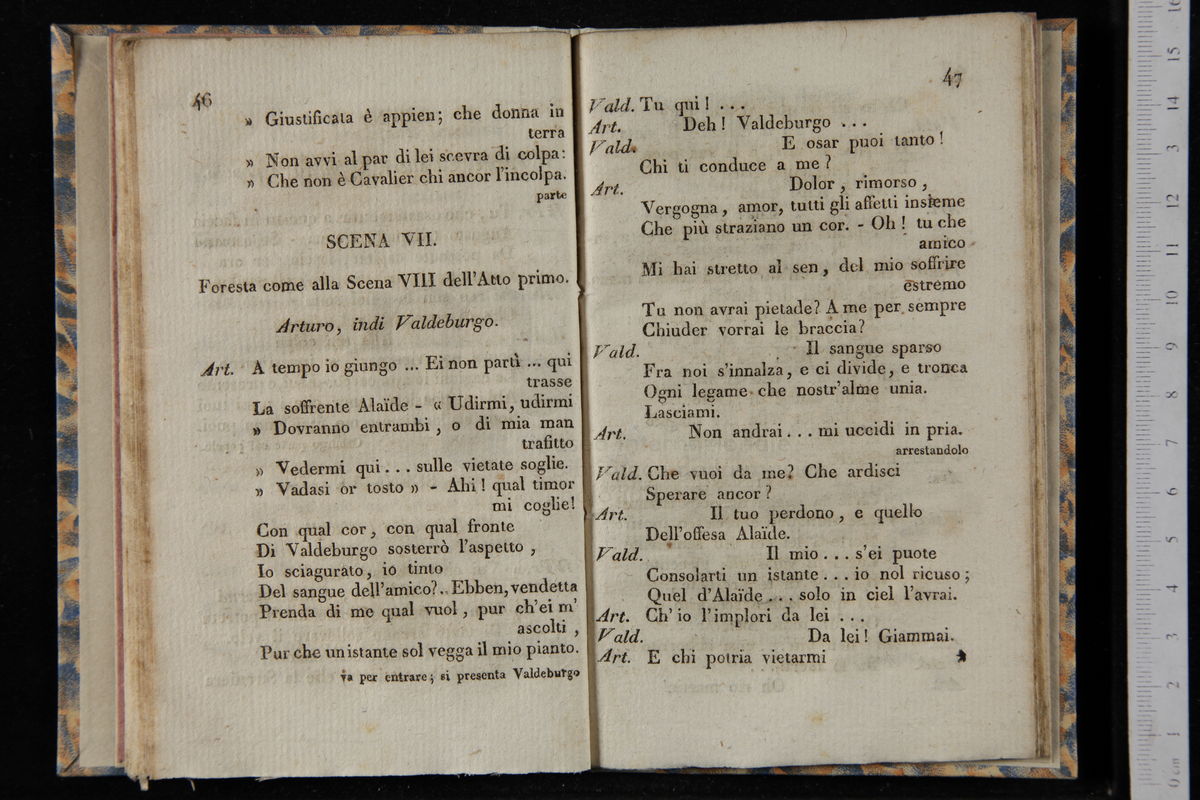 46
» Giustificata è appien; che donna in
terra
» Non avvi al par di lei scevra di colpa:
» Che non è Cavalier chi ancor l'incolpa.
parte
SCENA VII.
Foresta come alla Scena VIII dell'Atto primo.
Arturo, indi Valdeburgo.
Art. A tempo io giungo ... Ei non partì ... qui
trasse
La soffrente Alaïde - « Udirmi, udirmi
» Dovranno entrambi, o di mia man
trafitto
» Vedermi qui... sulle vietate soglie.
» Vadasi or tosto » - Ahi! qual timor
mi coglie!
Con qual cor, con qual fronte
Di Valdeburgo sosterrò l'aspetto,
Io sciagurato, io tinto
Del sangue dell'amico?.. Ebben, vendetta
Prenda di me qual vuol, pur ch'ei m'
ascolti,
Pur che un istante sol vegga il mio pianto.
va per entrare; si presenta Valdeburgo
47
Vald. Tu qui! ...
Art. Deh! Valdeburgo ...
Vald. E osar puoi tanto!
Chi ti conduce a me?
Art. Dolor, rimorso,
Vergogna, amor, tutti gli affetti insieme
Che più straziano un cor. - Oh! tu che
amico
Mi hai stretto al sen, del mio soffrire
estremo
Tu non avrai pietade? A me per sempre
Chiuder vorrai le braccia?
Vald. Il sangue sparso
Fra noi s'innalza, e ci divide, e tronca
Ogni legame che nostr'alme unia.
Lasciami.
Art. Non andrai... mi uccidi in pria.
arrestandolo
Vald. Che vuoi da me? Che ardisci
Sperare ancor?
Art. Il tuo perdono, e quello
Dell'offesa Alaïde.
Vald. Il mio... s'ei puote
Consolarti un istante... io nol ricuso;
Quel d'Alaïde... solo in ciel l'avrai.
Art. Ch' io l'implori da lei ...
Vald. Da lei! Giammai.
Art. E chi potria vietarmi
0 cm 1 2 3 4 5 6 7 8 9 10 11 12 13 14 15 16